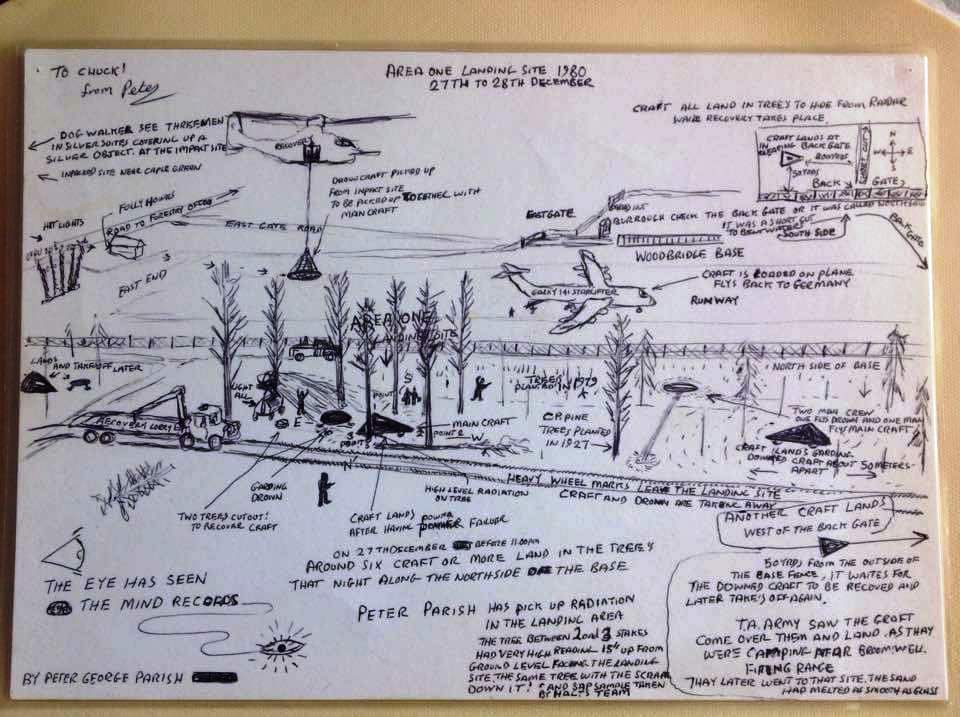 TO CHUCK!
from Peter
AREA ONE LANDING SITE 1980
27TH TO 28TH DECEMBER
CRAFT ALL LAND IN TREE'S TO HIDE FROM RADAR
WHILE RECOVERY TAKES PLACE.
DOG WALKER SEE THREE MEN
IN SILVER SUITES COVERING UP A
SILVER OBJECT. AT THE IMPACT SITE
IMPACED SITE NEAR CAPLE GREEN
RECOVERY
DROWN CRAFT PICKED UP
FROM IMPACT SITE
TO BE PICKED UP TOGETHER WITH
MAIN CRAFT
CRAFT LANDS AT
CLEARING BACK GATE
50 YRDS
BACK
GATE
N
W
E
S
FOLLY HOUSES
ROAD TO FORESTRY OFFICE
HIT LIGHTS
EAST GATE ROAD
EAST END
EASTGATE
BURROUGH CHECK THE BACK GATE OR IT WAS CALLED NORTHGATE
IT WAS A SHORT CUT
TO BENTWATERS
SOUTH SIDE
BACK GATE
WOODBRIDGE BASE
CRAFT IS LOADED ON PLANE
FLYS BACK TO GERMANY
RUNWAY
STARLIFTER
AREA ONE
LANDING SITE
LANDS
AND TAKE OFF LATER
NORTH SIDE OF BASE
TREE'S
PLANTED IN 1979
LIGHT
ALL
S
E
W
POINT
POINT 2
MAIN CRAFT
C.P. PINE
TREES PLANTED
IN 1927
RECOVERY LORRY
TWO MAN CREW
ONE FLYS DROWN AND ONE MAN
FLYS MAIN CRAFT
CRAFT LANDS GARDING
DOWNED CRAFT ABOUT 50 METERS
APART
GARDING
DROWN
HIGH LEVEL RADIATION
ON TREE
HEAVY WHEEL MARKS LEAVE THE LANDING SITE
CRAFT AND DROWN ARE TAKEN AWAY
TWO TREES CUTOUT!
TO RECOVER CRAFT
CRAFT LANDS
AFTER HAVING POWER FAILUR
ANOTHER CRAFT LANDS
WEST OF THE BACK GATE
ON 27TH DECEMBER BEFORE 11.00PM
AROUND SIX CRAFT OR MORE LAND IN THE TREE'S
THAT NIGHT ALONG THE NORTHSIDE OF THE BASE
THE EYE HAS SEEN
THE MIND RECORDS
PETER PARISH HAS PICK UP RADIATION
IN THE LANDING AREA
THE TREE BETWEEN 2 and 3 STAKES
HAD VERY HIGH READING 15ft UP FROM
GROUND LEVEL FACING THE LANDING
SITE. THE SAME TREE WITH THE SCRAM
DOWN IT! AND SAP SAMPLE TAKEN
BY HALT'S TEAM
50 YRDS FROM THE OUTSIDE OF
THE BASE FENCE, IT WAITES FOR
THE DOWNED CRAFT TO BE RECOVED AND
LATER TAKE'S OFF AGAIN.
T.A. ARMY SAW THE CRAFT
COME OVER THEM AND LAND. AS THAY
WERE CAMPING NEAR BROOMWELL
FIRING RANGE
THAY LATER WENT TO THAT SITE. THE SAND
HAD MELTED AS SMOOTH AS GLASS
BY PETER GEORGE PARISH